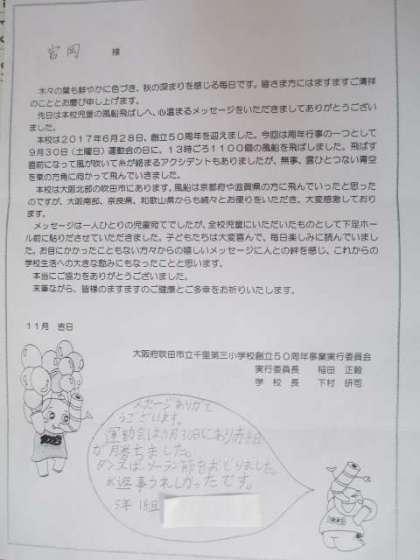 宮岡 様
木々の葉も鮮やかに色づき、秋の深まりを感じる毎日です。皆さま方にはますますご清祥
のこととお慶び申し上げます。
先日は本校児童の風船飛ばしへ、心温まるメッセージをいただきましてありがとうござい
ました。
本校は2017年6月28日、創立50周年を迎えました。今回は周年行事の一つとして
9月30日（土曜日）運動会の日に、13時ごろ1100個の風船を飛ばしました。飛ばす
直前になって風が吹いて糸が絡まるアクシデントもありましたが、無事、雲ひとつない青空
を東の方角に向かって飛んでいきました。
本校は大阪北部の吹田市にあります。風船は京都府や滋賀県の方に飛んでいったと思った
のですが、大阪南部、奈良県、和歌山県からも続々とお便りをいただき、大変感激しており
ます。
メッセージは一人ひとりの児童宛てでしたが、全校児童にいただいたものとして下足ホー
ル前に貼りださせていただきました。子どもたちは大変喜んで、毎日楽しみに読んでいまし
た。お目にかかったこともない方々からの嬉しいメッセージに人との絆を感じ、これからの
学校生活への大きな励みにもなったことと思います。
本当にご協力をありがとうございました。
末筆ながら、皆様のますますのご健康とご多幸をお祈りいたします。
11月 吉日
大阪府吹田市立千里第三小学校創立50周年事業実行委員会
実行委員長 稲田 正毅
学校長 下村 研司
メッセージありがと
うございます。
運動会は9月30日にあり赤組
が勝ちました。
ダンスはソーラン節をおどりました。
お返事うれしかったです。
5年1組